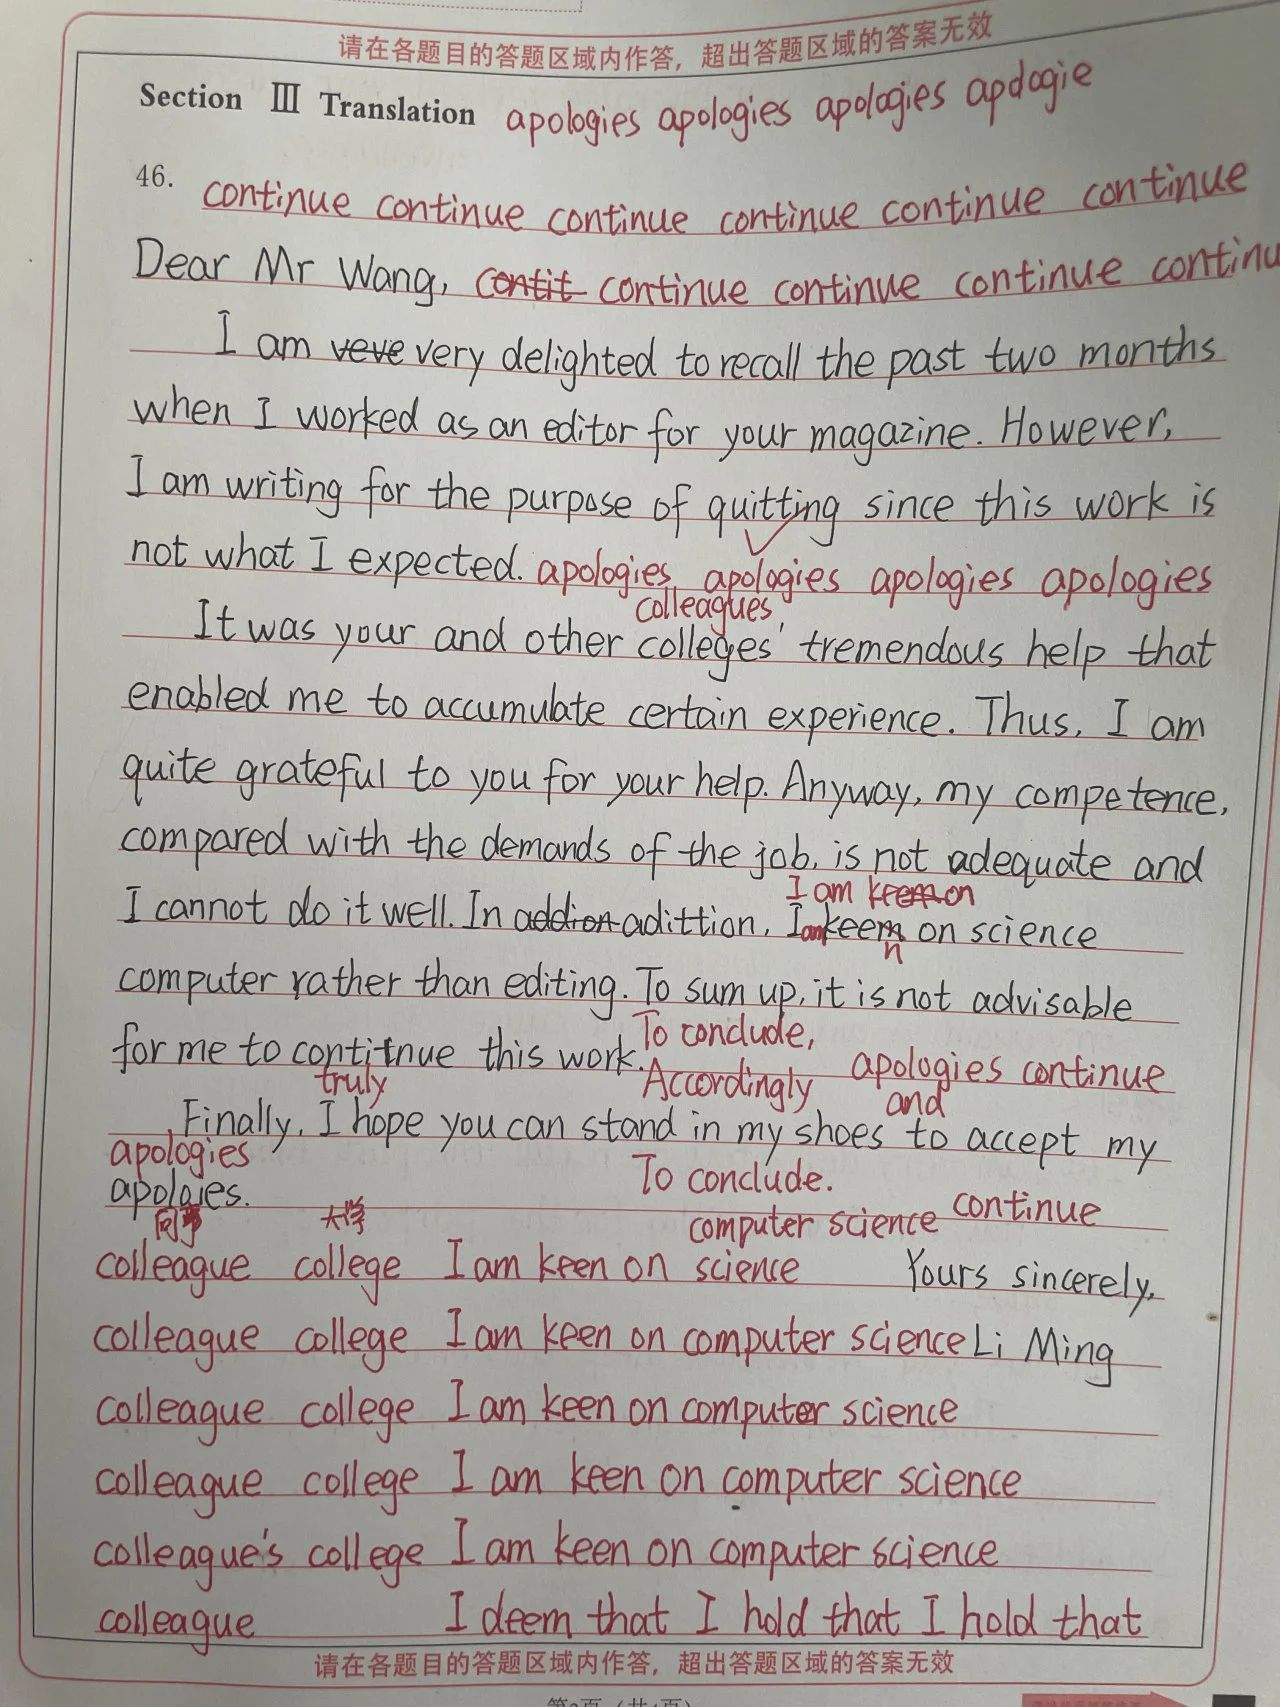 请在各题目的答题区域内作答，超出答题区域的答案无效
Section III Translation apologies apologies apologies apologie
46. continue continue continue continue continue continue
Dear Mr Wang, contit continue continue continue continu
I am veve very delighted to recall the past two months
when I worked as an editor for your magazine. However,
I am writing for the purpose of quitting since this work is
not what I expected. apologies apologies apologies apologies
colleagues'
It was your and other colleges' tremendous help that
enabled me to accumulate certain experience. Thus, I am
quite grateful to you for your help. Anyway, my competence,
compared with the demands of the job, is not adequate and
I am kremon
I cannot do it well. In addion adittion, I am keem on science
n
computer rather than editing. To sum up, it is not advisable
To conclude,
for me to contitnue this work.
truly Accordingly apologies continue
and
Finally, I hope you can stand in my shoes to accept my
apologies
apolaies. To conclude.
同事 大学 computer science continue
colleague college I am keen on science Yours sincerely,
colleague college I am keen on computer science Li Ming
colleague college I am keen on computer science
colleague college I am keen on computer science
colleague's college I am keen on computer science
colleague I deem that I hold that I hold that
请在各题目的答题区域内作答，超出答题区域的答案无效